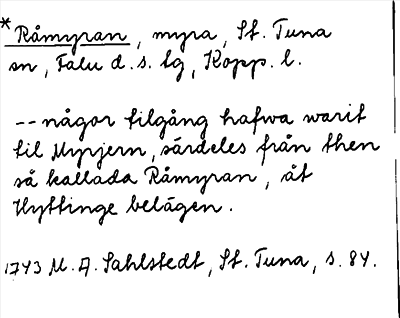 *Råmyran, myra, St. Tuna
sn, Falu d.s. lg, Kopp. l.
-- någor tilgång hafwa warit
til Myrjern, särdeles från then
så kallada Råmyran, åt
Hyttinge belägen.
1743 M. A. Sahlstedt, St. Tuna, s. 84.